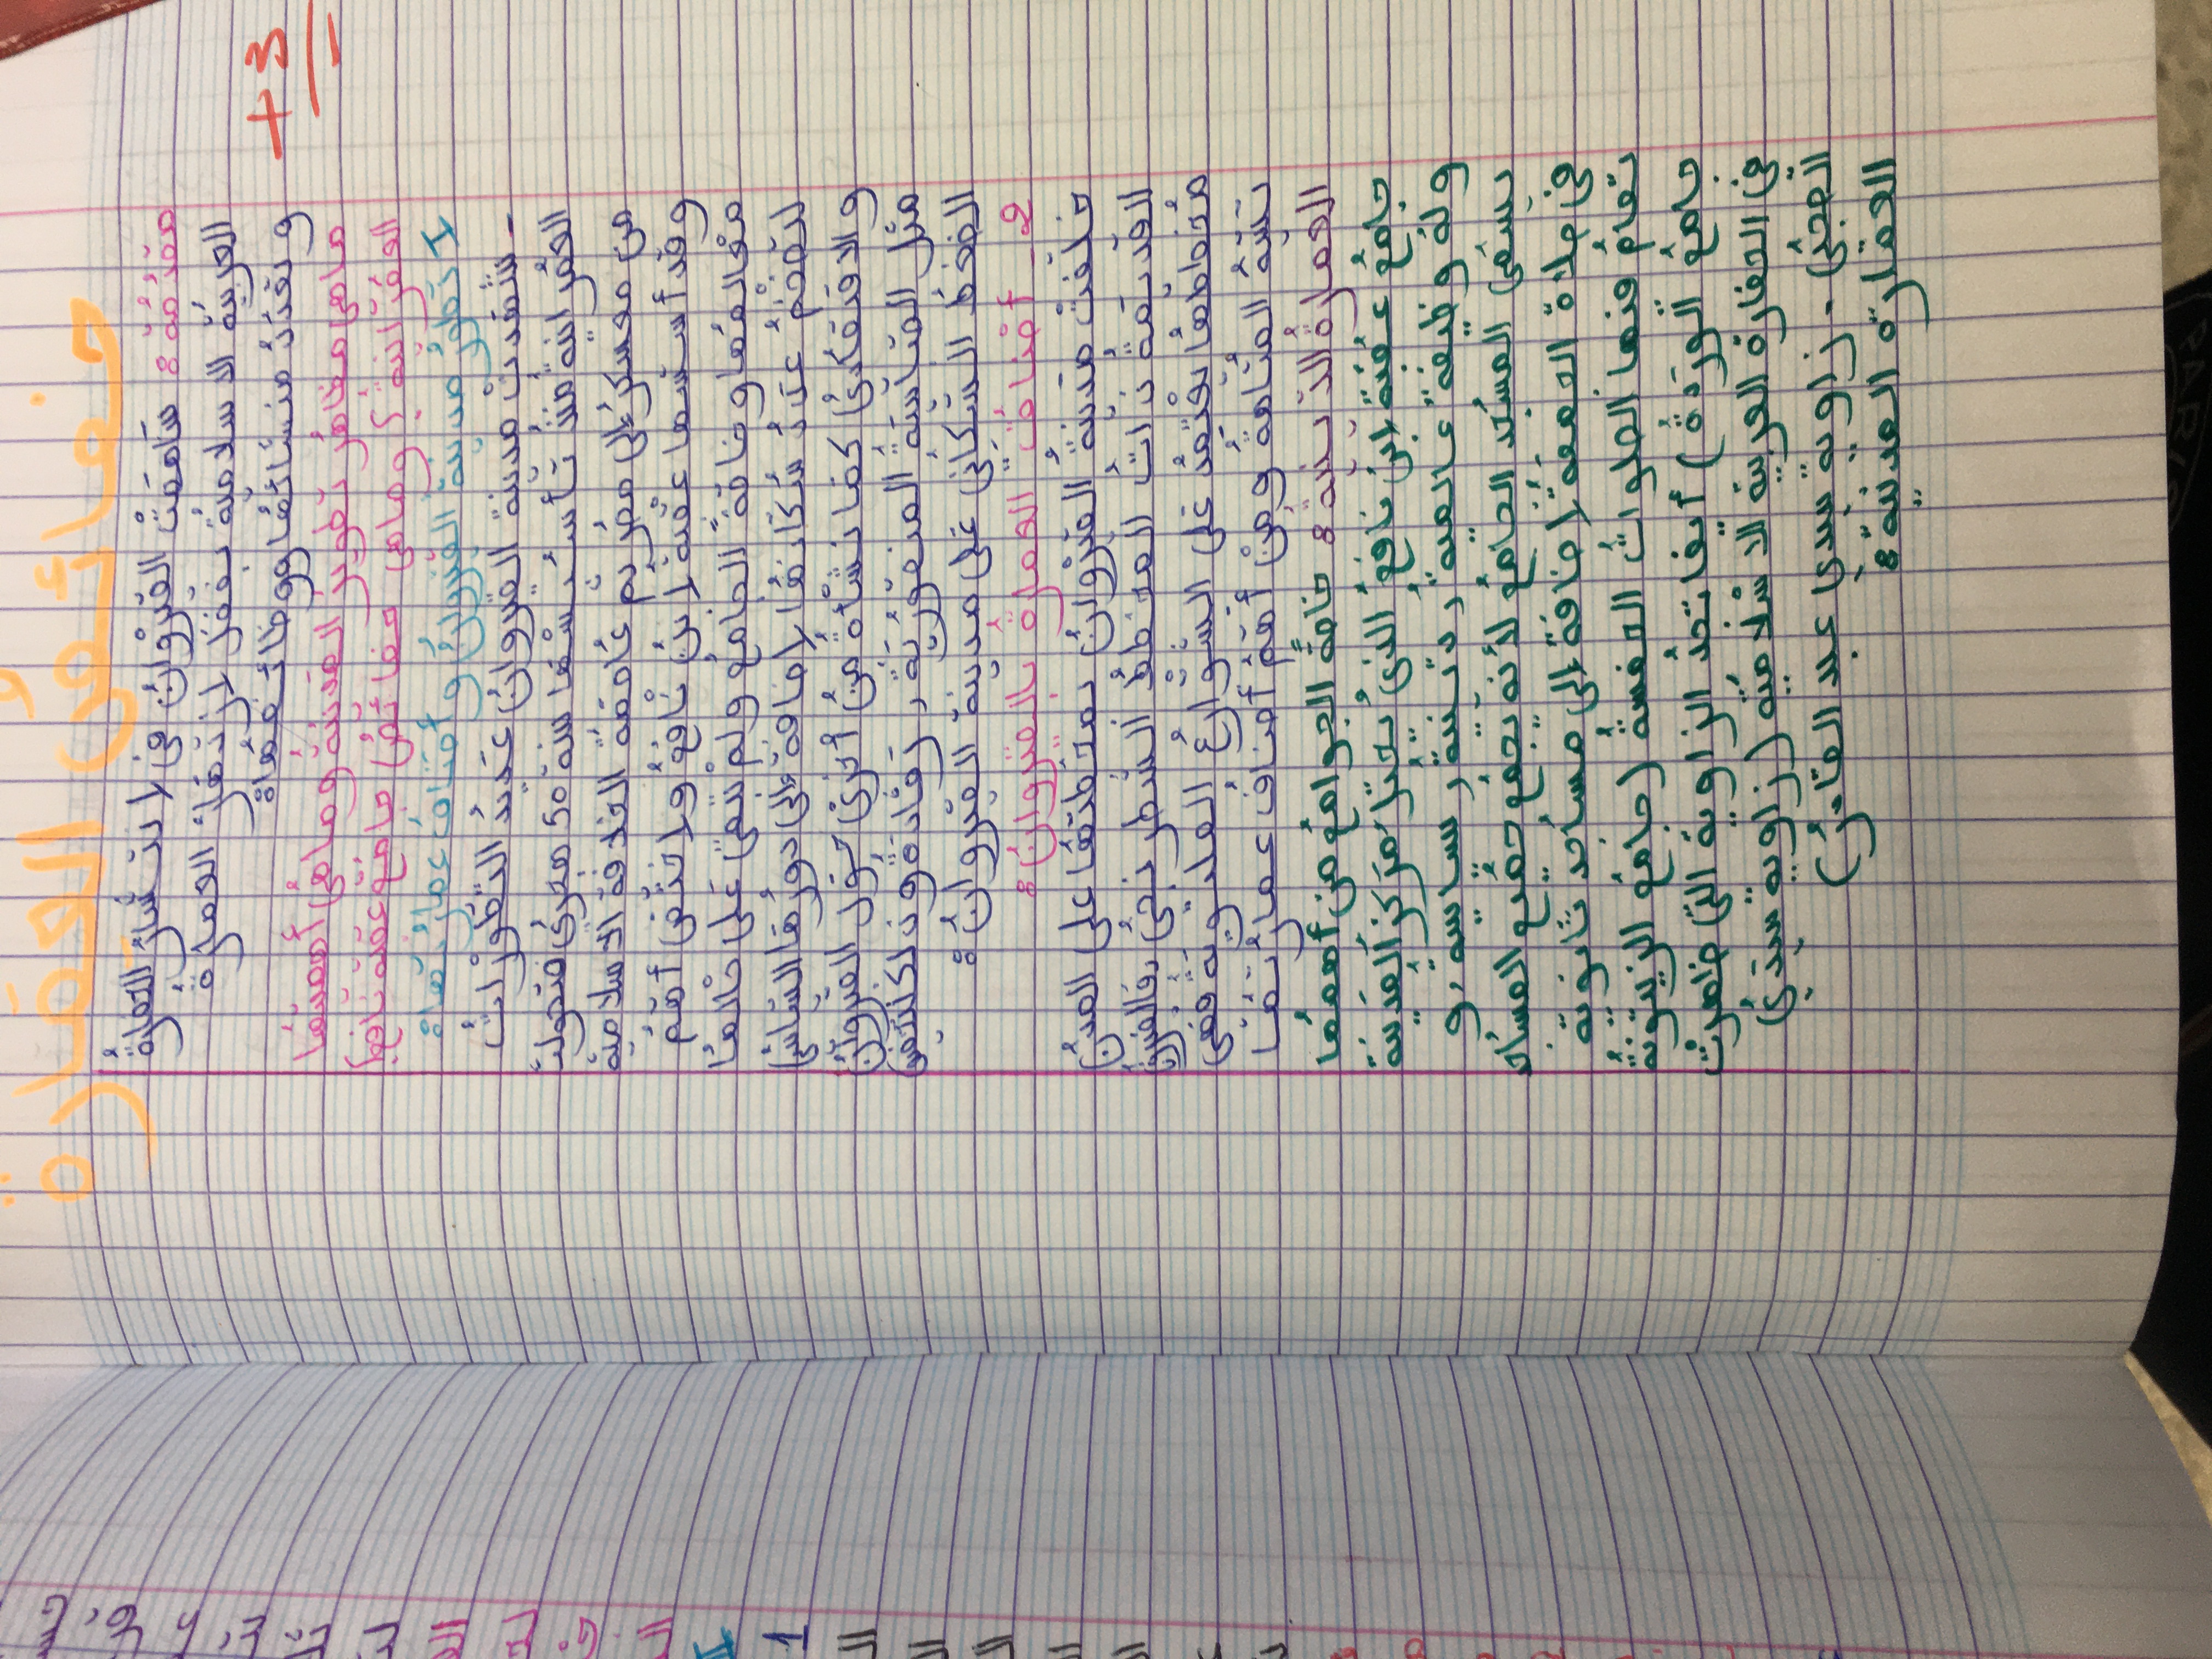 خصائص العمارة
مقدمة: ساهمت القيروان في انتشار الحضارة
العربية الاسلامية بفضل ازدهار العمارة
و تعدد منشائها ووظائفها:
ماهي مظاهر تطوير المدينة وماهي أهميتها
العمرانية؟ وماهي خصائص جامع عقبة نافع؟
I تطور مدينة القيروان وأصناف عمارتها:
- شهدت مدينة القيروان عديد التطورات
العمرانية منذ تأسيسها سنة 50 هجري فتحولت
من معسكر إلى مصر ثم عاصمة الخلافة الاسلامية
وقد أسسها عقبة ابن نافع واختص أهم
معالمها وخاصة الجامع ولم تبقى على حالها
لتضخم عدد سكانها إضافة إلى دورها السياسي
والاقتصادي كما نشأة مدن أخرى حول القيروان
مثل العباسية المنصورية, رقادة وذلك لتخفيض
الضغط السكاني على مدينة القيروان:
2 - أصناف العمارة بالقيروان:
خلفت مدينة القيروان بمخططها على المدن
القديمة ذات المخطط الشطرنجي, فالقيروان
مخططها يعتمد على الشوارع الملتوية فهي
تشبه المتاهة ومن أهم أصناف عمارتها
العمارة الدينية: خاصة الجوامع من أهمها
جامع عقبة ابن نافع الذي يحتل مركز المدينة
وله وظيفة عالمية, دينية, سياسية, و
يسمى المسجد الجامع لأنه يجمع جميع المساجد
في صلاة الجمعة إضافة إلى مساجد ثانوية
تقام فيها الصلوات الخمسة (جامع الزيتونة
جامع الوردة) أيضا تجد الزاوية التي ظاهرت
في الحضارة العربية الاسلامية (زاوية سيدي
الصحبي - زاوية سيدي عبد القادر)
العمارة المدنية:
+ 3
1